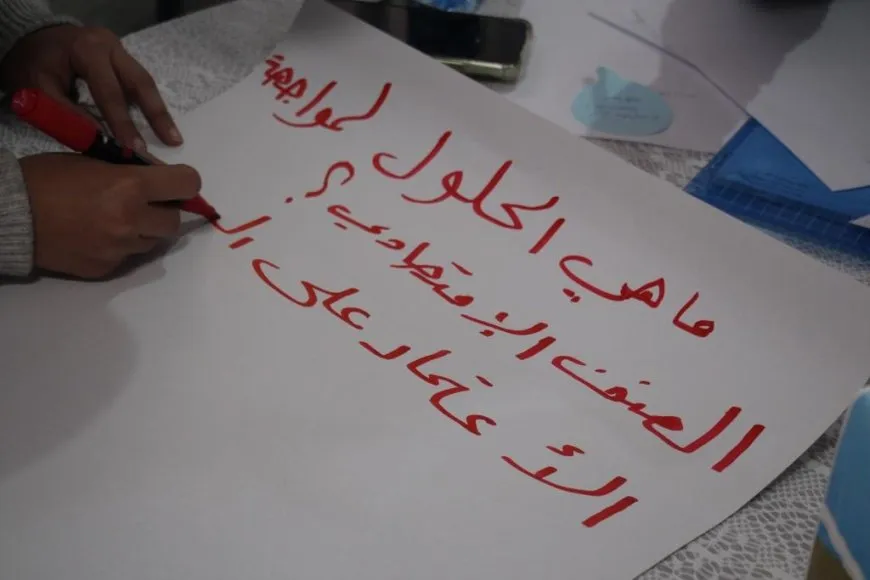 ماهي الحلول لمواجهة
العنف الاقتصادي؟
الأعتماد على ال